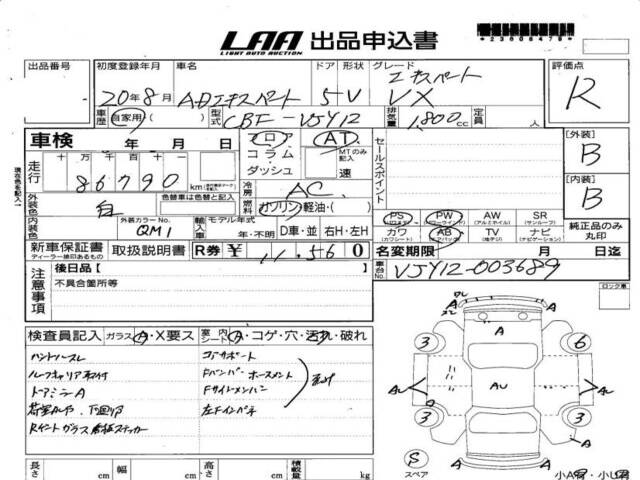 LAA 出品申込書
LIGHT AUTO AUCTION
*23806478*
出品番号 初度登録年月 車名 ドア 形状 グレード 評価点
20年8月 ADエキスパート 5 V エキスパート VX R
車歴 自家用( ) 型式 CBF-VJY12 排気量 1,800cc 定員 人
車検 年 月 日
フロア・コラム・ダッシュ AT MTのみ記入 速
セールスポイント
[外装] B
現在色を記入
走行 十 万 千 百 十 一
86790 km
冷房 AC
[内装] B
外装色 白 色替車は色替と記入 燃料 ガソリン・軽油・( )
PS (パワステ) PW (パワーウインドウ) AW (アルミホイル) SR (サンルーフ)
内装色 外装カラーNo. QM1 輸入車 モデル年式 年・不明 D車・並 右H・左H
カワ (カワシート) AB (エアバック) TV (地デジ) ナビ (ナビゲーション) 純正品のみ丸印
新車保証書 ディーラー捺印あるもの 取扱説明書 R券 ¥ 11,560
名変期限 月 日迄
注意事項 後日品[ ]
車台No. VJY12-003689
不具合箇所等
ロック車
検査員記入 ガラス A・X要ス 室内シート A・コゲ・穴・汚れ・破れ
ハンドルスレ コアサポート
ルーフキャリア取付 Fバンパ・ホースメント
ドアミラーA Fサイドメンバー
左Fインパネ
Rサイドガラス 看板ステッカー
A
A A
3 6
A AU A
3 3
A
S スペア
A A
長さ cm 幅 cm 高さ cm 積載量 kg